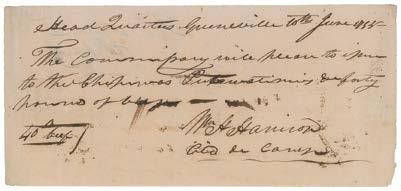 Head Quarters Greeneville 10th June 1795
The Commissary will please to issue
to the Chipiwas Putawatimies & forty
pounds of beef
40 lb beef
Wm H Harrison
Aid de Camp